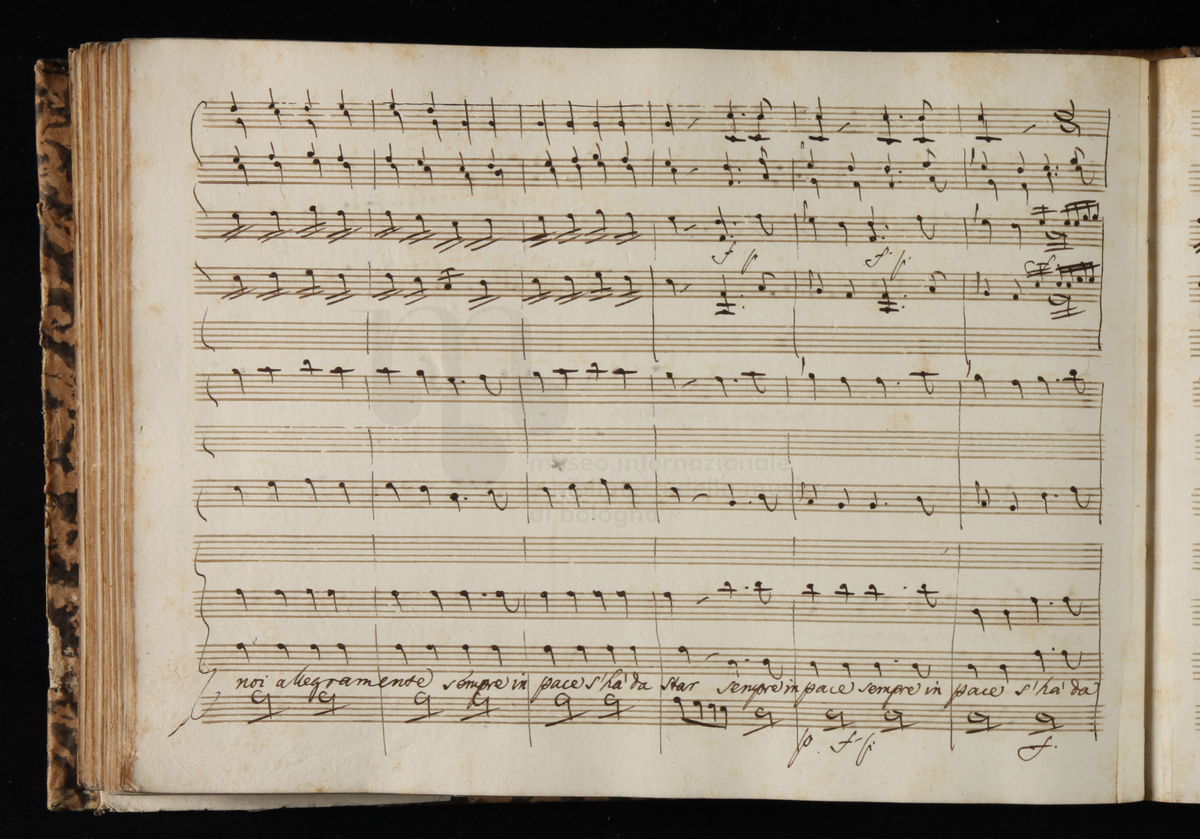 f p f p
f
museo internazionale
di bologna
noi allegramente sempre in pace s'hà da star sempre in pace sempre in pace s'hà da
p. f p f.